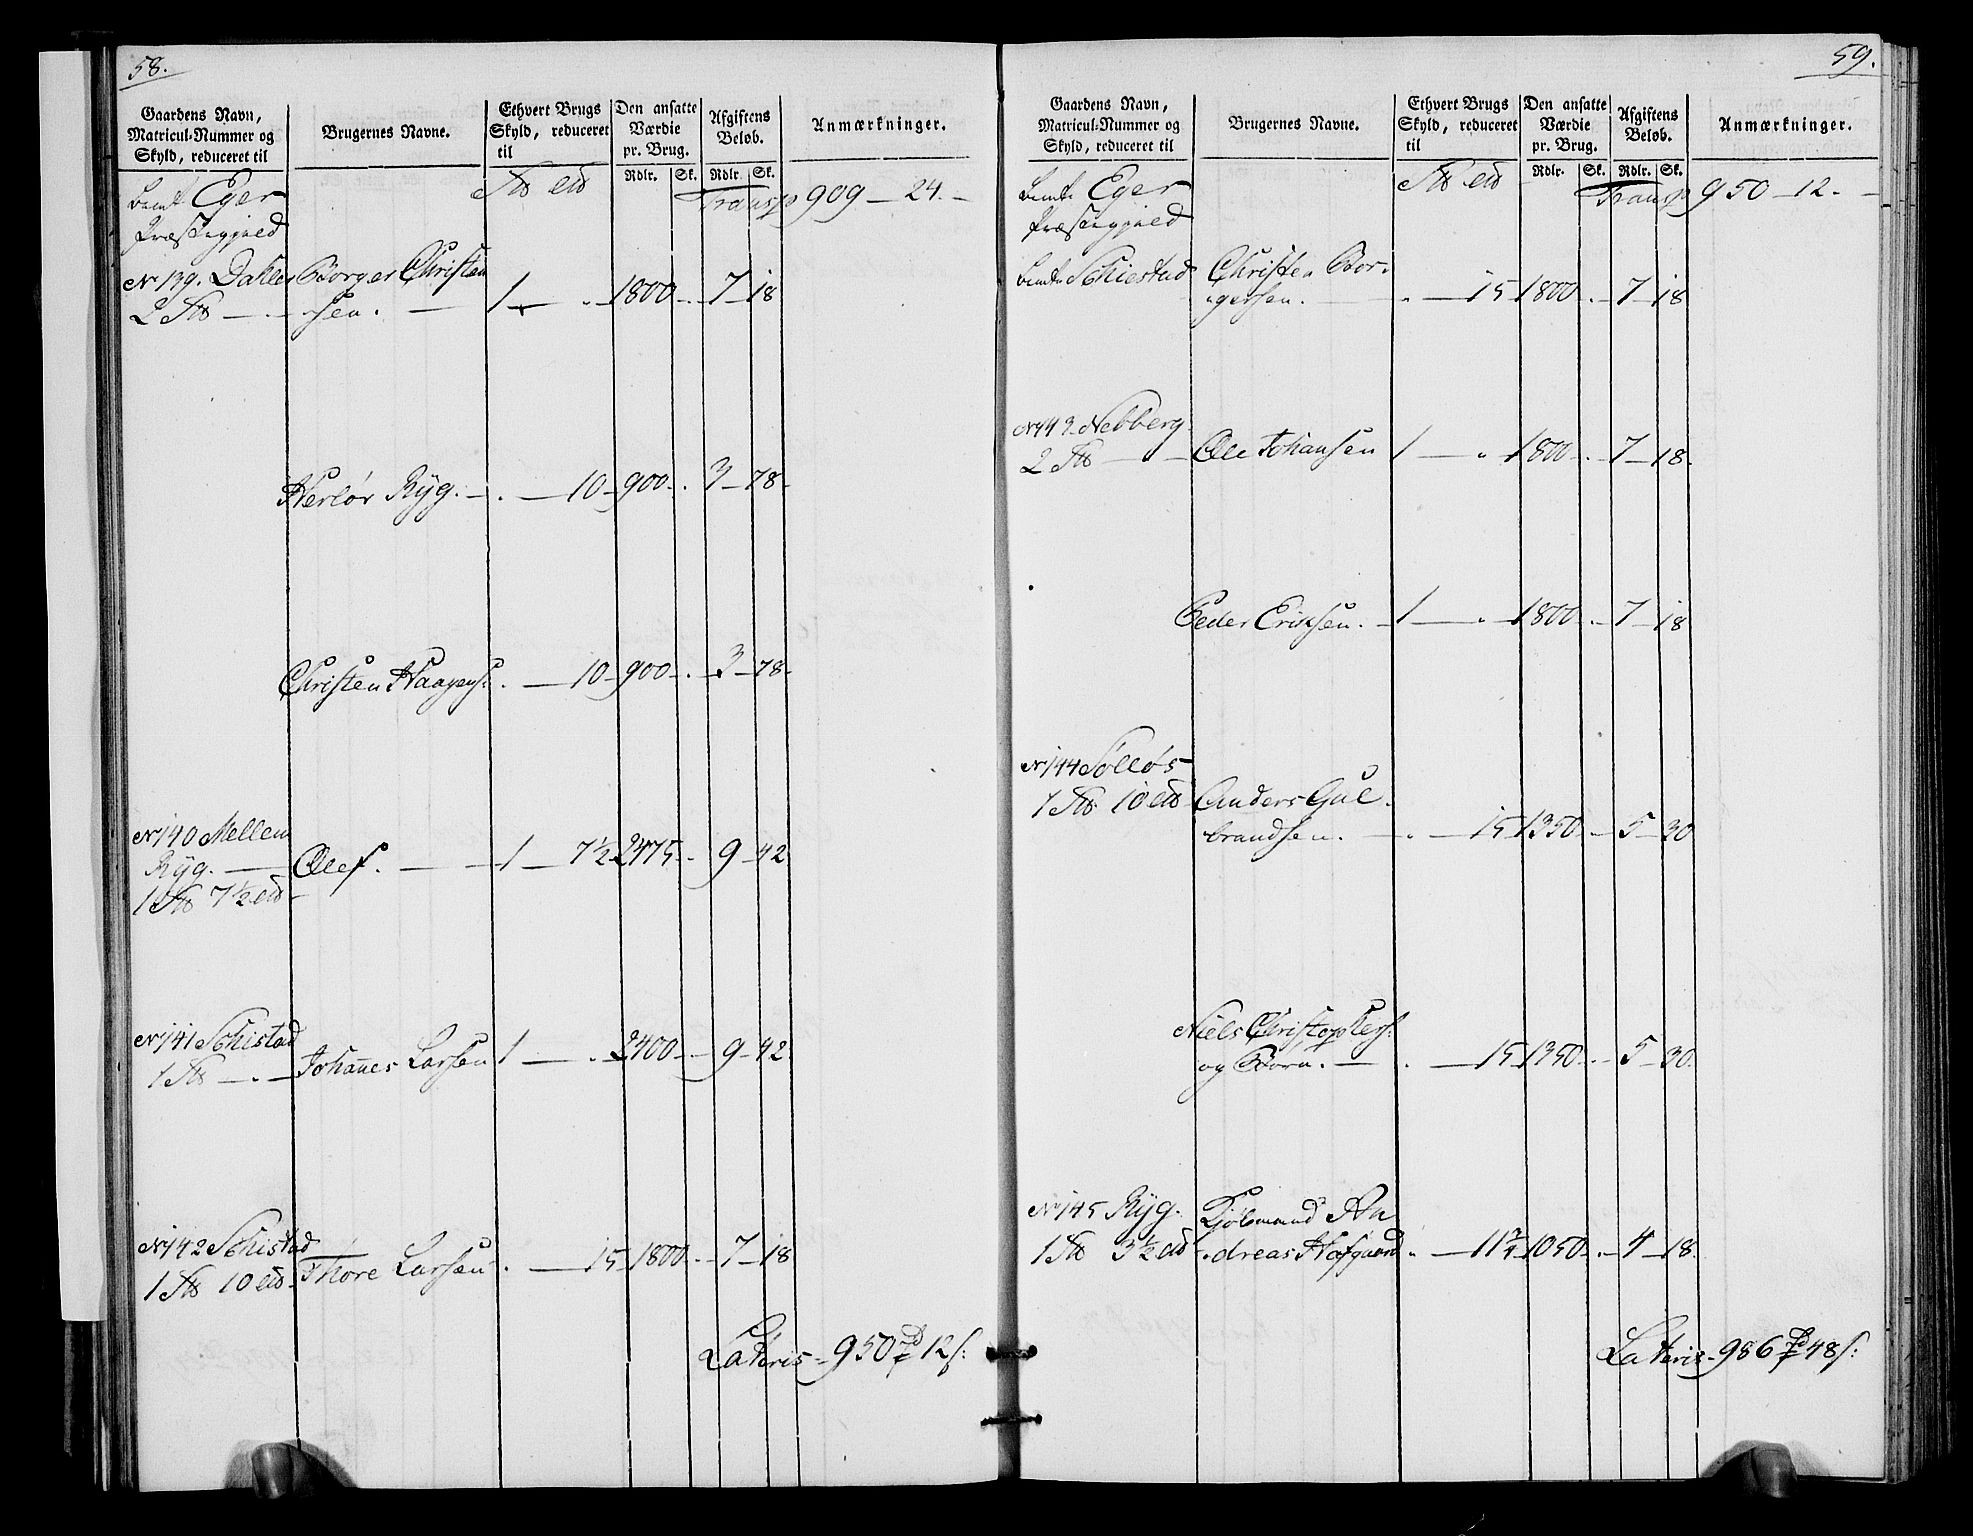 58.
Gaardens Navn,
Matricul-Nummer og
Skyld, reduceret til
Brugernes Navne.
Ethvert Brugs
Skyld, reduceret
til
Den ansatte
Værdie
pr. Brug.
Afgiftens
Beløb.
Anmærkninger.
Rdlr. Sk. Rdlr. Sk.
Eger
Præstegjeld
Transp 909 — 24. —
No 139. Dahler Borger Christen
2 — . — sen. — 1 — . — 1800 . — 7 — 18
Herlør Ryg. — . — 10 — 900 — . 3 — 78 -
Christen Haagens: . — 10 — 900 — . — 3 — 78 -
No 140 Mellem
Ryg. — Olef. — 1 — 7½ 2475 — . 9 — 42
1 7½
No 141 Schistad
1 — . — Johannes Larsen 1 — . — 2400 — . — 9 — 42
No 142 Schistad
1 10 Thore Larsen . — 15 — 1800 . — 7 — 18
Lateris — 950 12 s:
59.
Gaardens Navn,
Matricul-Nummer og
Skyld, reduceret til
Brugernes Navne.
Ethvert Brugs
Skyld, reduceret
til
Den ansatte
Værdie
pr. Brug.
Afgiftens
Beløb.
Anmærkninger.
Rdlr. Sk. Rdlr. Sk.
Eger
Præstegjeld
Transp 950 — 12. —
Schiestad Christen Bor-
gersen. — . — 15 1800 . — 7 — 18
No 143 Nebberg
2 — . — Ole Johansen 1 — . — 1800 — . — 7 — 18.
Peder Eriksen. — 1 — . — 1800 — . — 7 — 18
No 144 Sølløs
1 10 Anders Gul-
brandsen. — . — 15 1350 — . — 5 — 30
Niels Christophers:
og Born. — . — 15 — 1350 — . — 5 — 30.
No 145 Ryg. Kjøbmand An
1 3½ dreas Hofgaard . — 11¾ — 1050 — . — 4 — 18.
Lateris — 986 48 s: